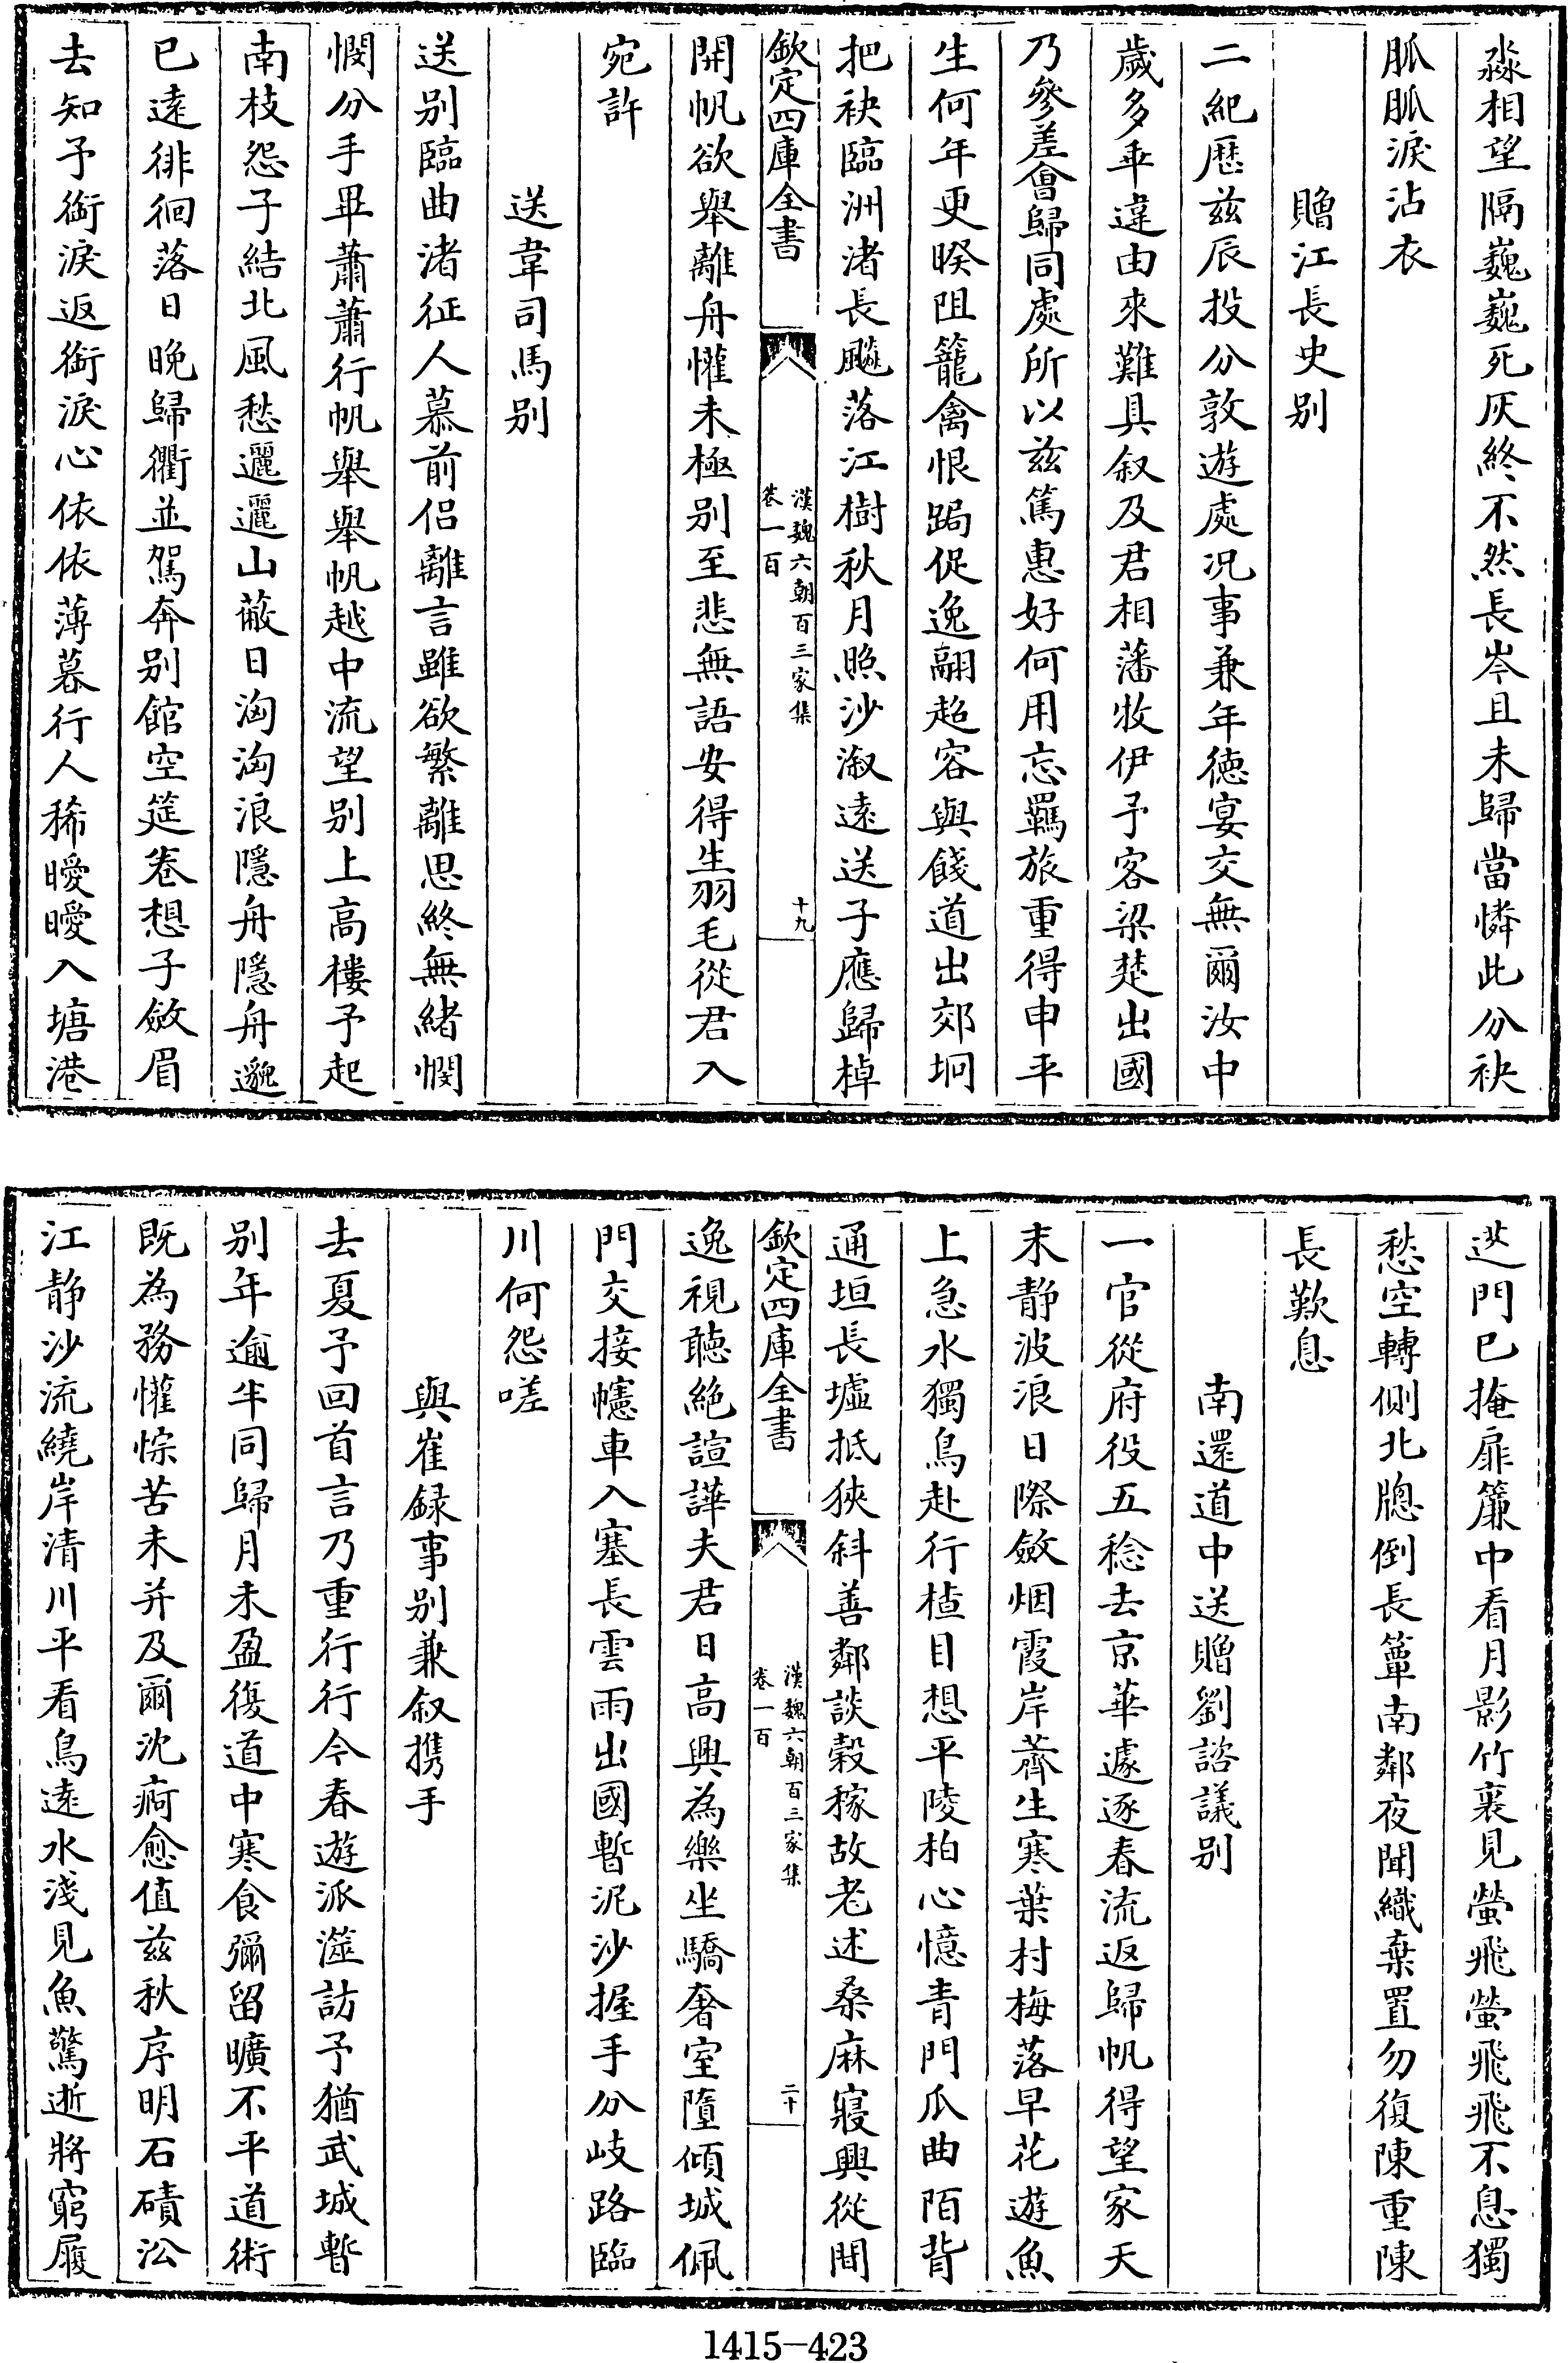 淼相望隔巍巍死灰終不然長岑且未歸當憐此分袂
脈脈淚沾衣
贈江長史别
二紀歴茲辰投分敦遊處况事兼年徳宴交無爾汝中
歲多乖違由來難具叙及君相藩牧伊予客梁楚出國
乃參差會歸同處所以茲篤惠好何用忘羈旅重得申平
生何年更暌阻籠禽恨跼促逸翮超容與餞道出郊坰
把袂臨洲渚長飈落江樹秋月照沙溆遠送子應歸棹
欽定四庫全書
漢魏六朝百三家集
卷一百
十九
開帆欲舉離舟懽未極别至悲無語安得生羽毛從君入
宛許
送韋司馬别
送别臨曲渚征人慕前侣離言雖欲繁離思終無緒憫
憫分手畢蕭蕭行帆舉舉帆越中流望别上高樓予起
南枝怨子結北風愁邐邐山蔽日洶洶浪隱舟隱舟邈
已遠徘徊落日晚歸衢並駕奔别館空筵卷想子斂眉
去知予銜淚返銜淚心依依薄暮行人稀曖曖入塘港
蓬門已掩扉簾中看月影竹裏見螢飛螢飛飛不息獨
愁空轉側北牎倒長簟南鄰夜聞織棄置勿復陳重陳
長歎息
南還道中送贈劉諮議别
一官從府役五稔去京華遽逐春流返歸帆得望家天
末静波浪日際斂烟霞岸薺生寒葉村梅落早花遊魚
上急水獨鳥赴行楂目想平陵柏心憶青門瓜曲陌背
通垣長墟抵狹斜善鄰談穀稼故老述桑麻寢興從閒
欽定四庫全書
漢魏六朝百三家集
卷一百
二十
逸視聴絶諠譁夫君日高興為樂坐驕奢室墮傾城佩
門交接幰車入塞長雲雨出國暫泥沙握手分岐路臨
川何怨嗟
與崔録事别兼叙携手
去夏予回首言乃重行行今春遊派澨訪予猶武城暫
别年逾半同歸月未盈復道中寒食彌留曠不平道術
既為務懽悰苦未并及爾沈痾愈值茲秋序明石磧沿
江静沙流繞岸清川平看鳥遠水淺見魚驚逝將窮履
1415-423